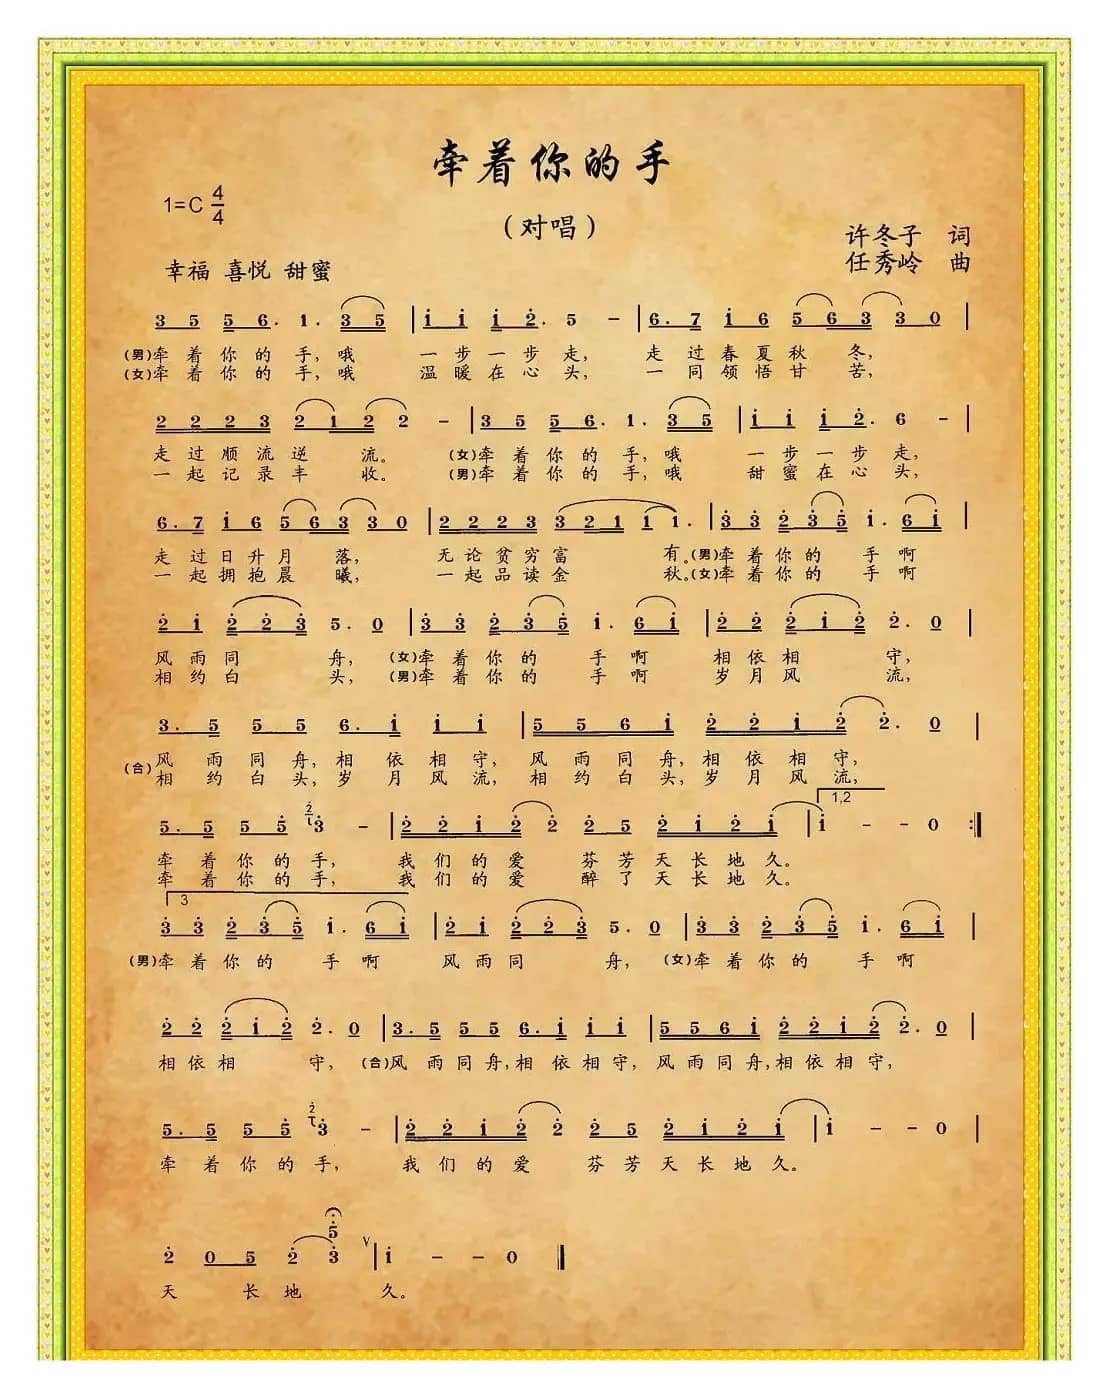 牵着你的手
1=C 4/4
（对唱）
许冬子 词
幸福 喜悦 甜蜜
任秀岭 曲
3 5 5 6. 1. 3 5 | i i i 2. 5 – | 6. 7 i 6 5 6 3 3 0 |
(男)牵着你的手，哦 一步一步走， 走过春夏秋 冬，
(女)牵着你的手，哦 温暖在心头， 一同领悟甘 苦，
2 2 2 3 2 1 2 2 – | 3 5 5 6. 1. 3 5 | i i i 2. 6 – |
走过顺流逆 流。 (女)牵着你的手，哦 一步一步走，
一起记录丰 收。 (男)牵着你的手，哦 甜蜜在心头，
6. 7 i 6 5 6 3 3 0 | 2 2 2 3 3 2 1 1 1. | 3 3 2 3 5 i. 6 i |
走过日升月 落， 无论贫穷富 有。(男)牵着你的 手啊
一起拥抱晨 曦， 一起品读金 秋。(女)牵着你的 手啊
2 i 2 2 3 5. 0 | 3 3 2 3 5 i. 6 i | 2 2 2 i 2 2. 0 |
风雨同 舟， (女)牵着你的 手啊 相依相 守，
相约白 头， (男)牵着你的 手啊 岁月风 流，
3. 5 5 5 6. i i i | 5 5 6 i 2 2 i 2 2. 0 |
(合)风雨同舟，相依相守，风雨同舟，相依相守，
相约白头，岁月风流，相约白头，岁月风流，
1,2
5. 5 5 5 2 3 – | 2 2 i 2 2 2 5 2 i 2 i | i – – 0 :|
牵着你的手， 我们的爱 芬芳天长地久。
牵着你的手， 我们的爱 醉了天长地久。
3
3 3 2 3 5 i. 6 i | 2 i 2 2 3 5. 0 | 3 3 2 3 5 i. 6 i |
(男)牵着你的 手啊 风雨同 舟， (女)牵着你的 手啊
2 2 2 i 2 2. 0 | 3. 5 5 5 6. i i i | 5 5 6 i 2 2 i 2 2. 0 |
相依相 守， (合)风雨同舟，相依相守，风雨同舟，相依相守，
5. 5 5 5 2 3 – | 2 2 i 2 2 2 5 2 i 2 i | i – – 0 |
牵着你的手， 我们的爱 芬芳天长地久。
5
2 0 5 2 3 V | i – – 0 ‖
天 长地 久。